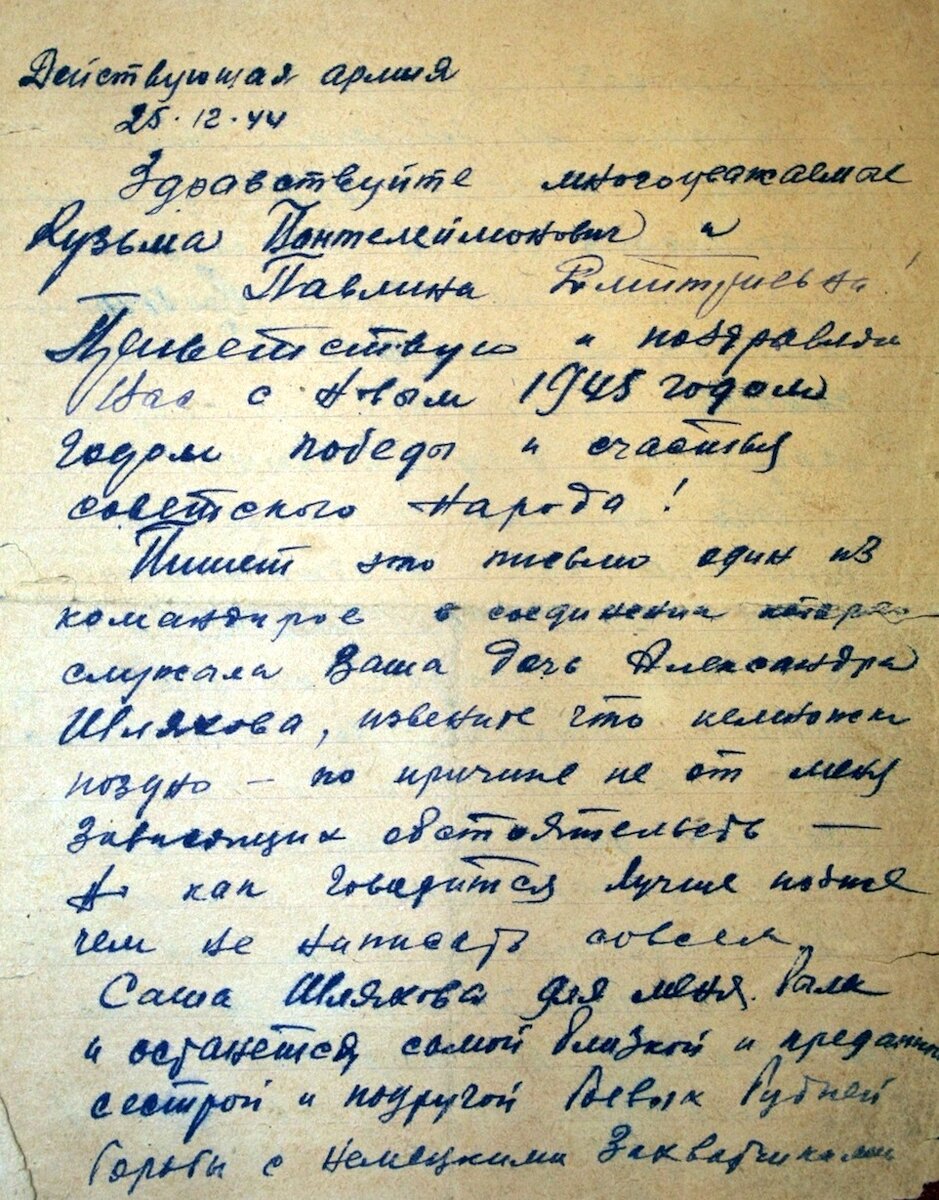 Действующая армия
25.12.44
Здравствуйте многоуважаемые
Кузьма Пантелеймонович и
Павлина Дмитриевна!
Приветствую и поздравляю
Вас с Новым 1945 годом
годом победы и счастья
советского народа!
Пишет это письмо один из
командиров в соединении которого
служила Ваша дочь Александра
Шляхова, извените что немножко
поздно — по причине не от меня
зависящих обстоятельств —
Но как говорится лучше позже
чем не написать совсем
Саша Шляхова для меня была
и останется самой близкой и преданной
сестрой и подругой боевых будней
борьбы с немецкими захватчиками